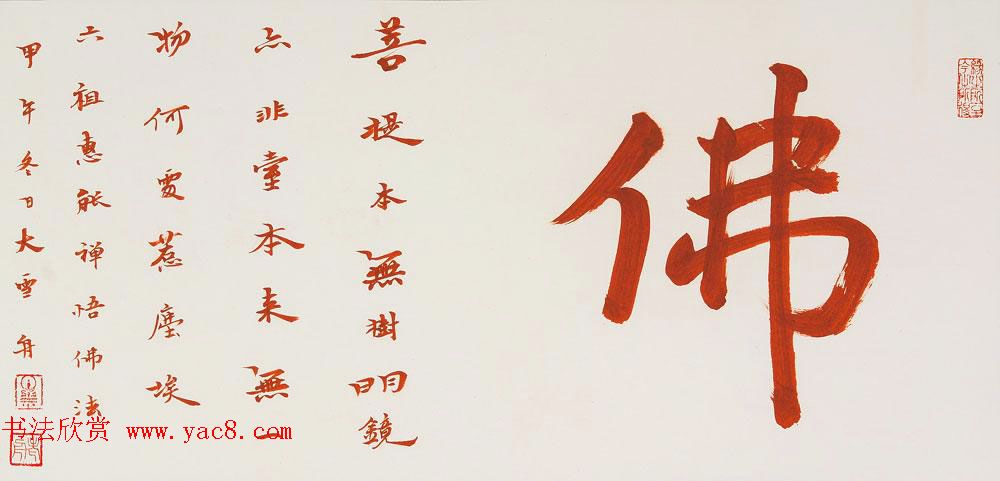 佛
菩提本無樹明鏡
亦非臺本来無一
物何處惹塵埃
六祖惠能禅悟佛法
甲午冬日大雪 舟
书法欣赏 www.yac8.com